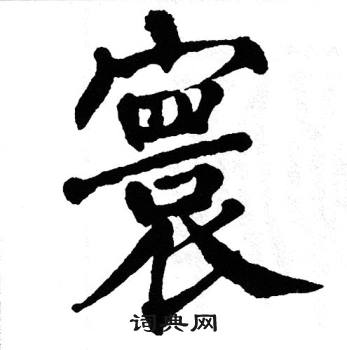 寰
词典网